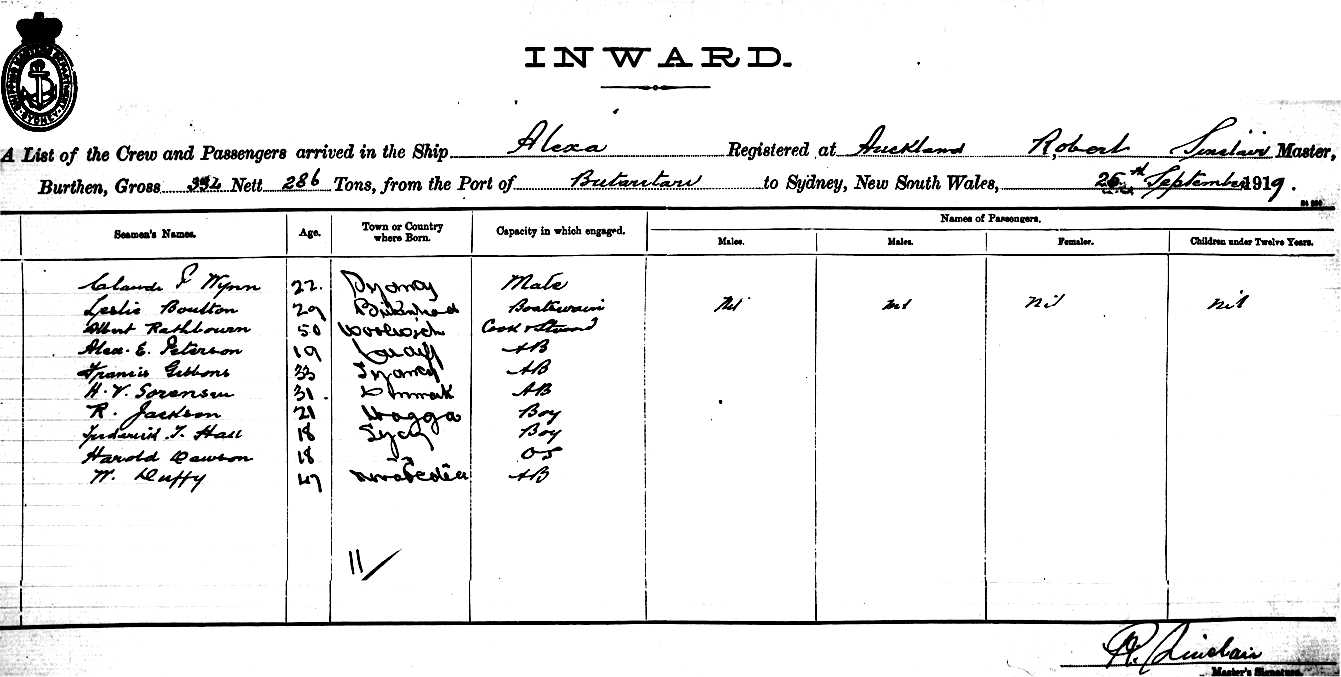 SHIPPING MASTERS DEPARTMENT SYDNEY
INWARD.
A List of the Crew and Passengers arrived in the Ship Alexa Registered at Auckland Robert Sinclair Master,
Burthen, Gross 394 Nett 286 Tons, from the Port of Butaritari to Sydney, New South Wales, 25th September 1919.
Seamen's Names. Age. Town or Country where Born. Capacity in which engaged. Names of Passengers.
Males. Males. Females. Children under Twelve Years.
Claude F Wynn 22. Sydney Mate
Leslie Boulton 29 Birkenhead Boatswain Nil Nil Nil Nil
Albert Rathbourn 50 Woolwich Cook & Steward
Alex. E. Peterson 19 Cardiff AB
Francis Gibbons 33 Sydney AB
H. V. Sorensen 31. Denmark AB
R. Jackson 21 Wagga Boy
Frederick T. Hall 18 Sydney Boy
Harold Dawson 18 " OS
W. Duffy 47 AB
11/
R. Sinclair
Master's Signature.